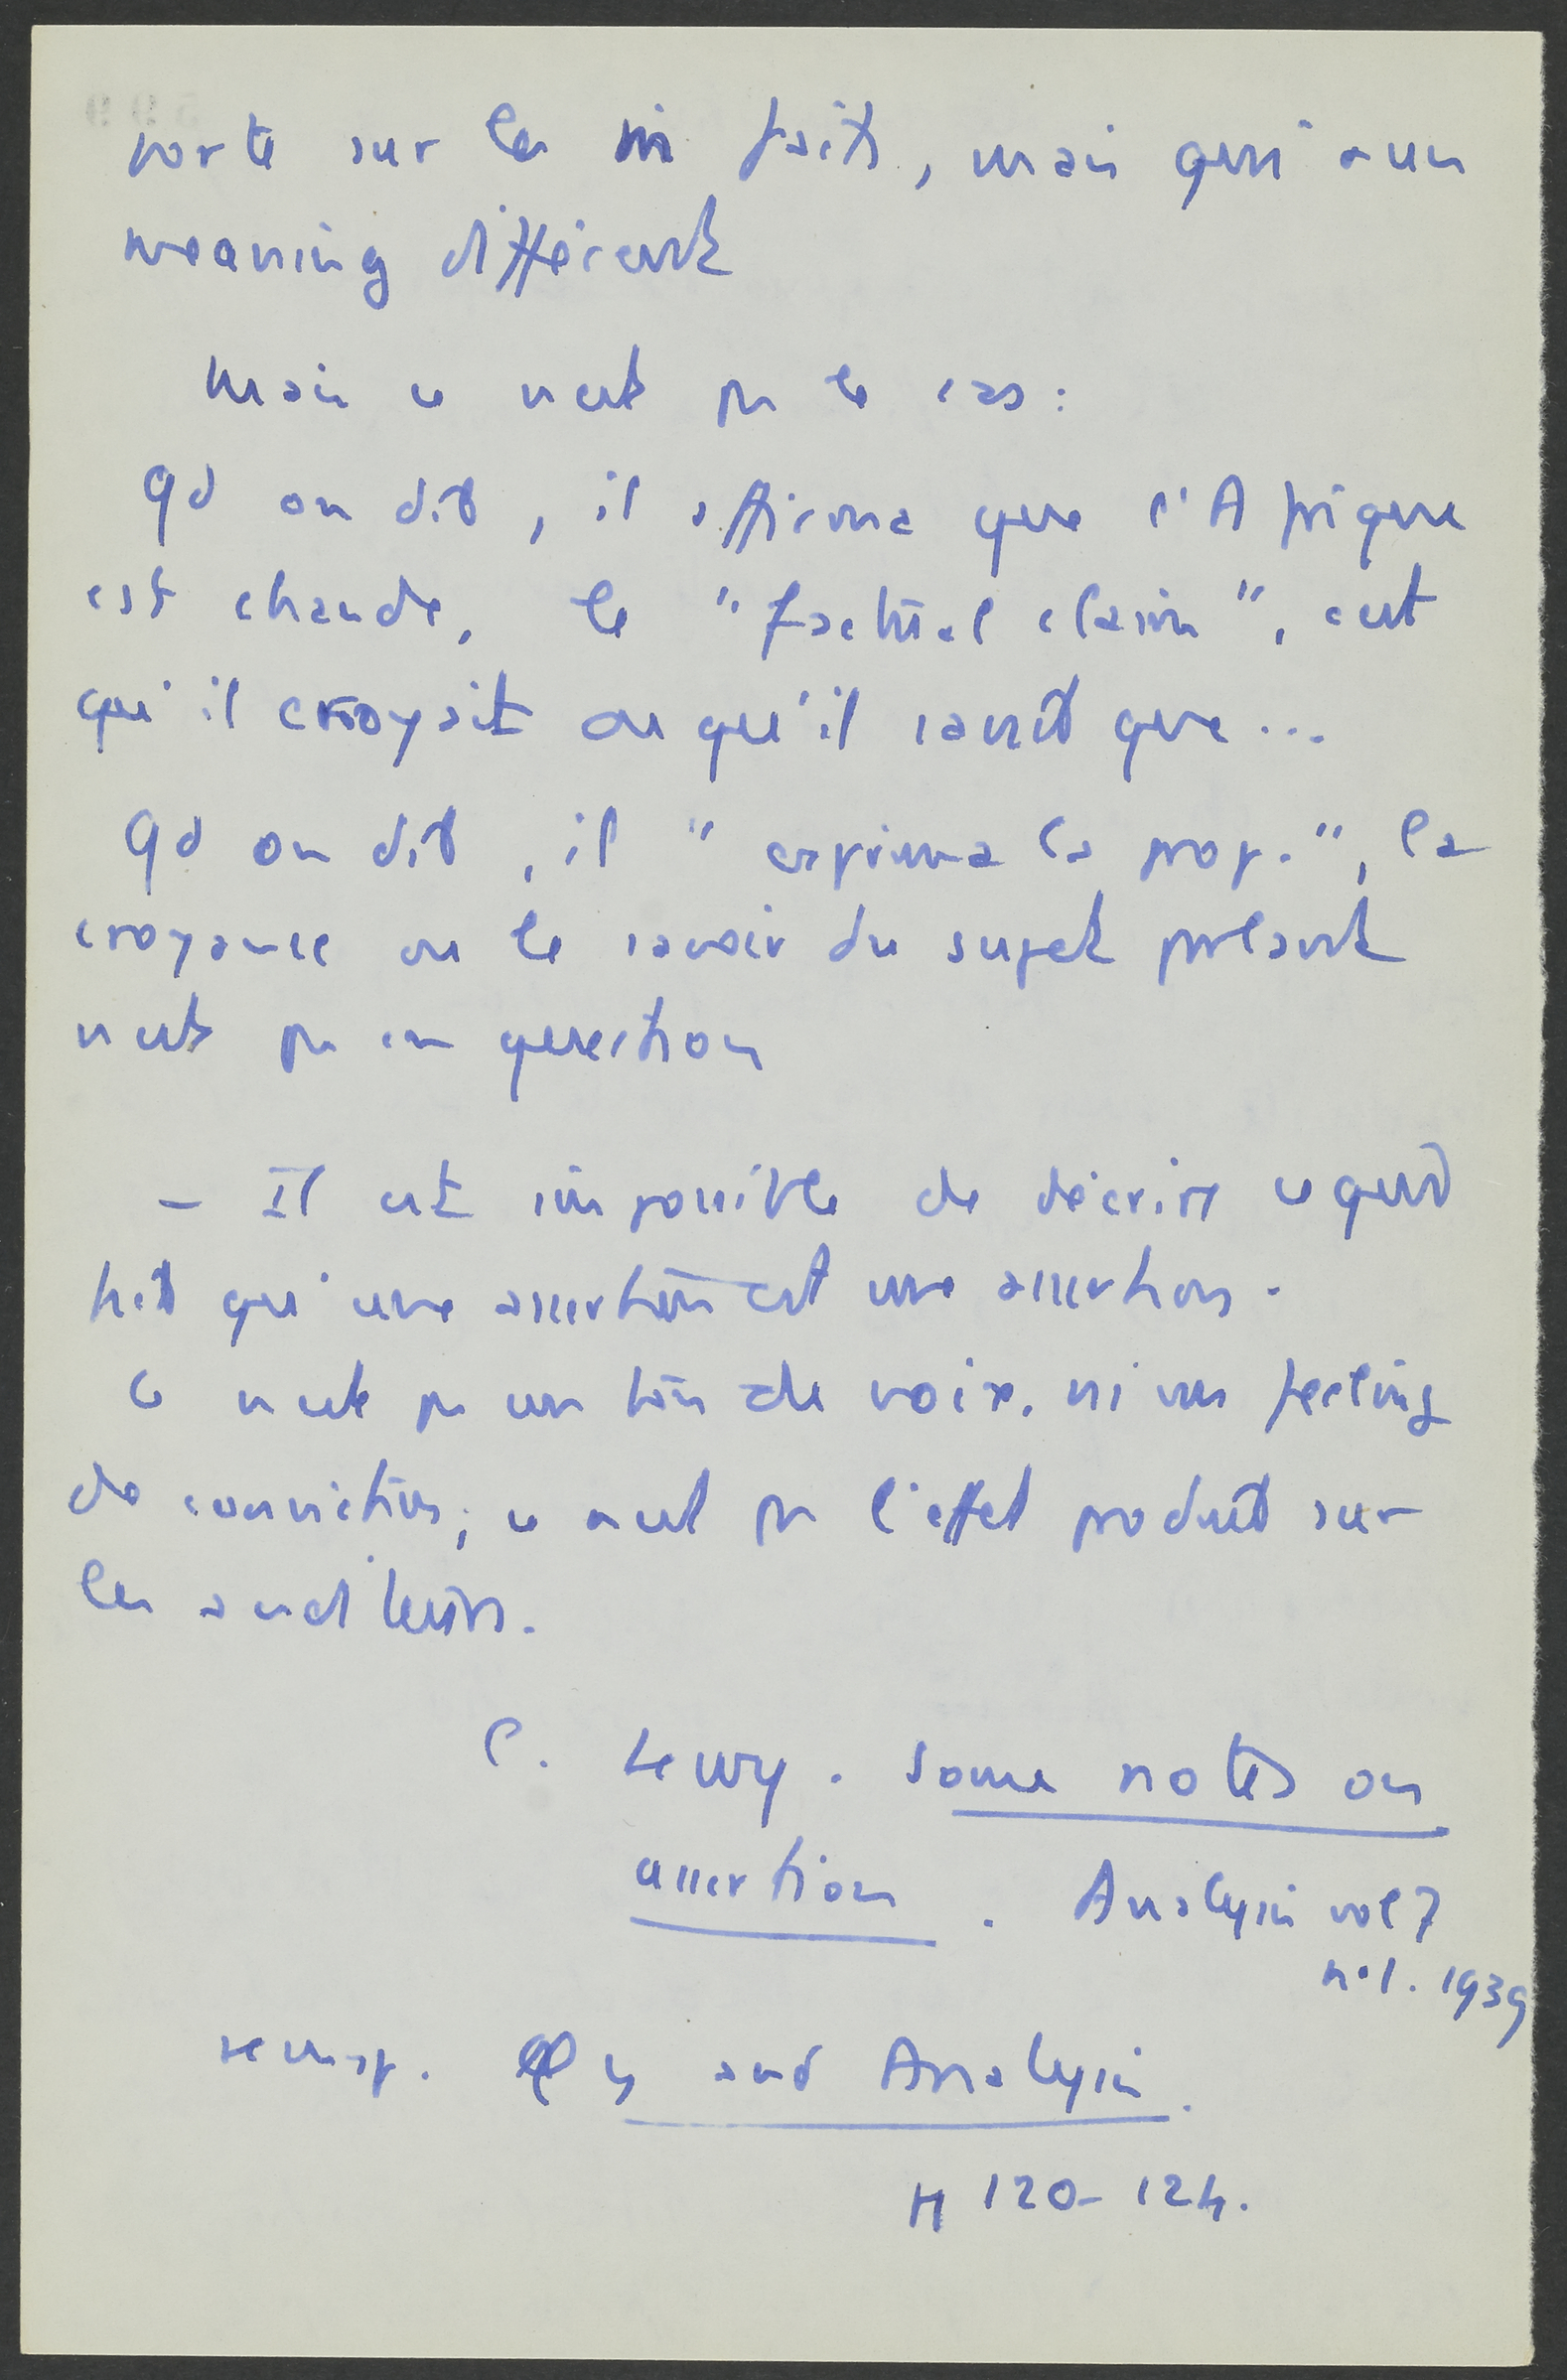 porte sur les m faits, mais qui a un
meaning différent
Mais ce n'est pas le cas :
Qd on dit, il affirma que l'Afrique
est chaude, le "factual claim", c'est
qu'il croyait ou qu'il savait que...
Qd on dit, il "exprima la prop.", la
croyance ou le savoir du sujet parlant
n'est pas en question
- Il est impossible de décrire ce qui
fait qu'une assertion est une assertion.
Ce n'est pas un ton de voix, ni un feeling
de conviction ; ce n'est pas l'effet produit sur
les auditeurs.
C. Lewy. Some notes on
assertion. Analysis vol 7
n° 1. 1939
reimp. Φy and Analysis.
pp 120-124.